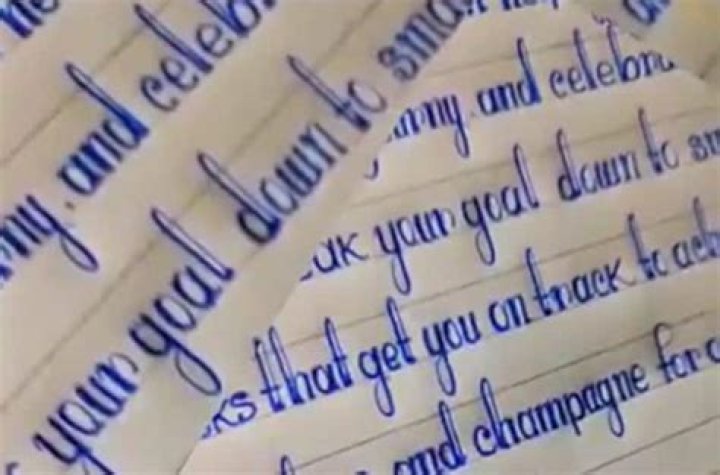 and celeb
your goal down to sma
and celebra
your goal down to sm
that get you on track to ach
and champagne for